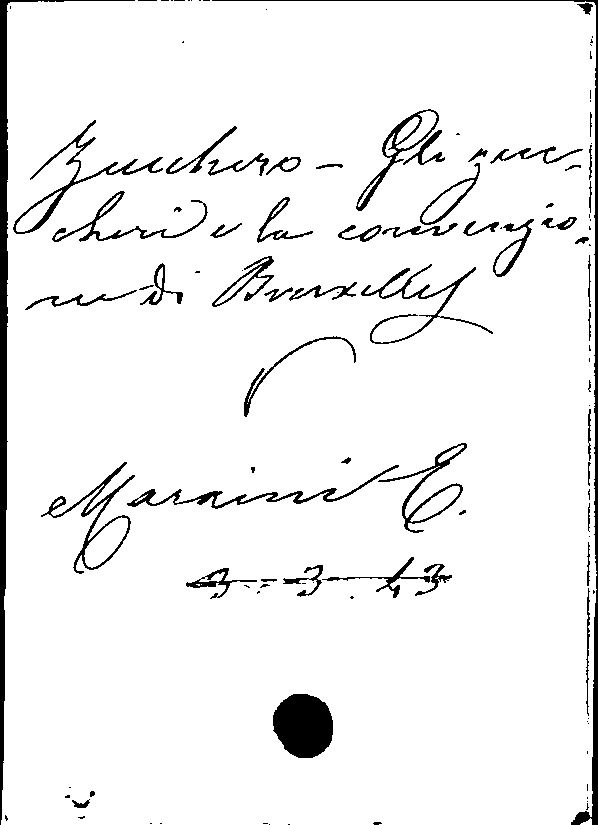 Zucchero - Gli zuc-
cheri e la convenzio-
ne di Bruxelles
Maraini E.
3 - 3. 43